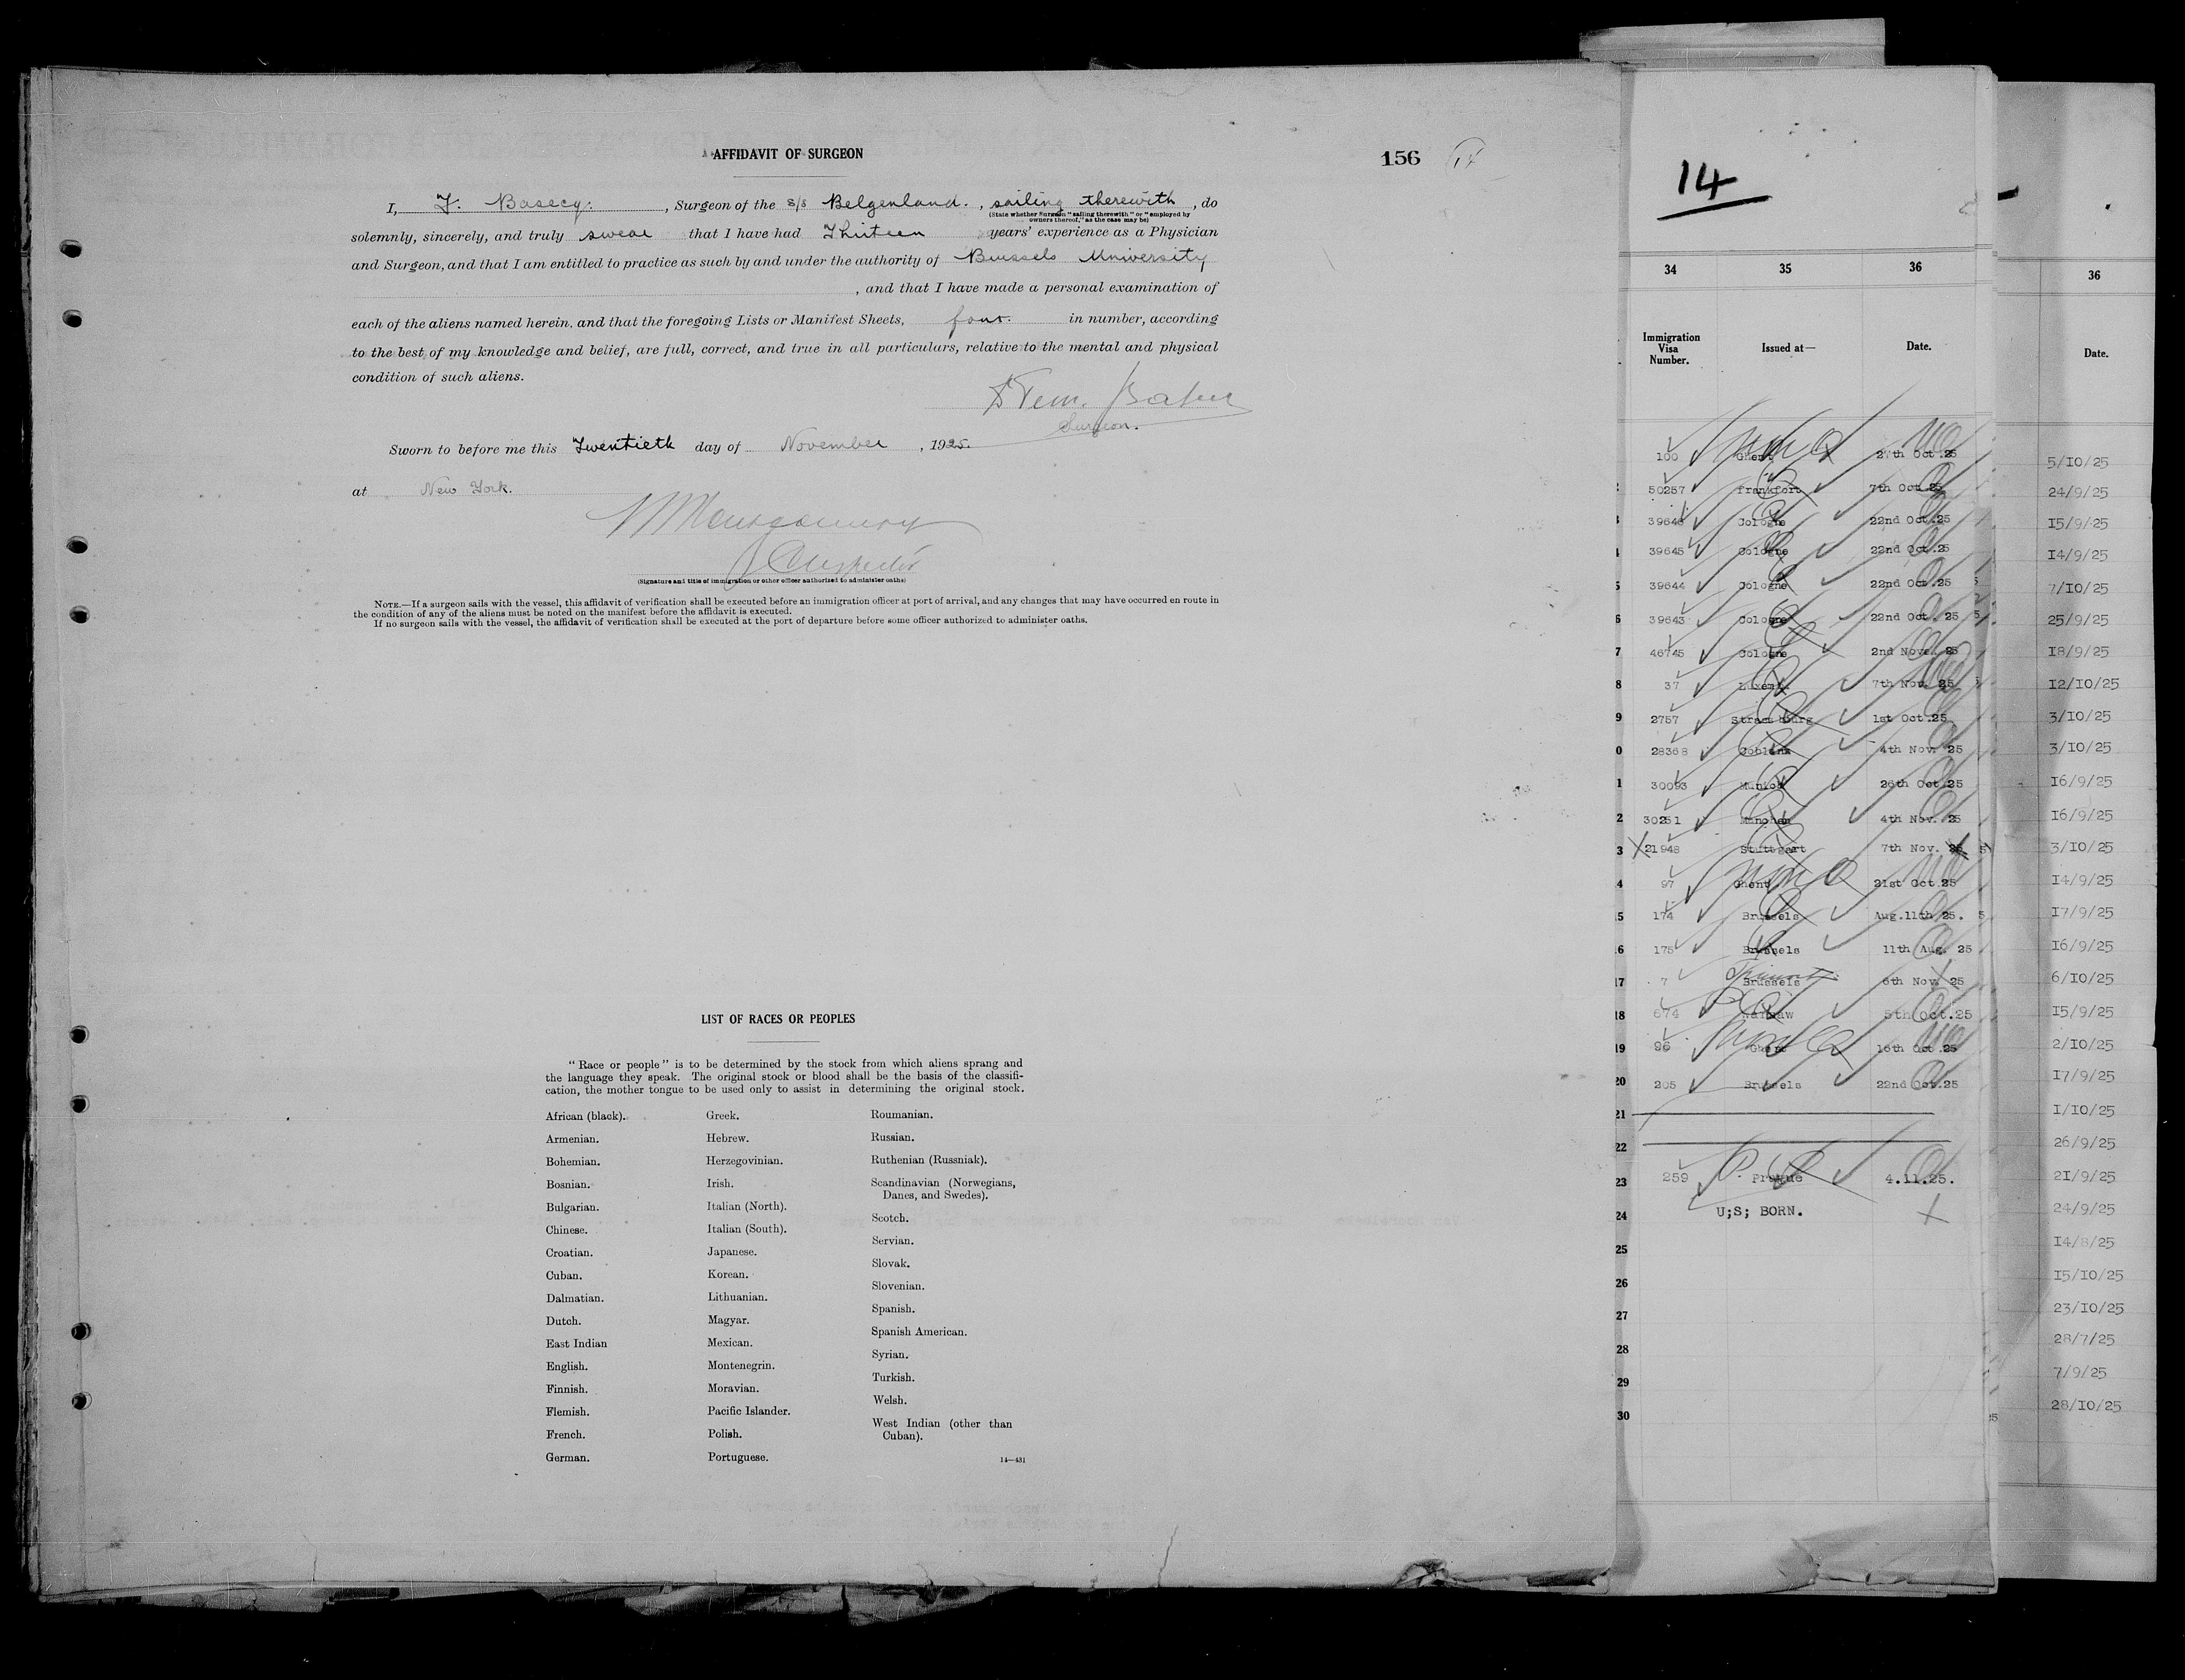 AFFIDAVIT OF SURGEON
156
14
I, Basecq. , Surgeon of the s/s Belgenland. , sailing therewith , do
(State whether Surgeon "sailing therewith" or "employed by
owners thereof," as the case may be)
solemnly, sincerely, and truly swear that I have had Thirteen years' experience as a Physician
and Surgeon, and that I am entitled to practice as such by and under the authority of Brussels University
, and that I have made a personal examination of
each of the aliens named herein, and that the foregoing Lists or Manifest Sheets, four in number, according
to the best of my knowledge and belief, are full, correct, and true in all particulars, relative to the mental and physical
condition of such aliens.
Surgeon.
Sworn to before me this Twentieth day of November , 1925.
at New York.
Montgomery
Inspector
(Signature and title of immigration or other officer authorized to administer oaths)
NOTE.—If a surgeon sails with the vessel, this affidavit of verification shall be executed before an immigration officer at port of arrival, and any changes that may have occurred en route in
the condition of any of the aliens must be noted on the manifest before the affidavit is executed.
If no surgeon sails with the vessel, the affidavit of verification shall be executed at the port of departure before some officer authorized to administer oaths.
LIST OF RACES OR PEOPLES
"Race or people" is to be determined by the stock from which aliens sprang and
the language they speak. The original stock or blood shall be the basis of the classifi-
cation, the mother tongue to be used only to assist in determining the original stock.
African (black).
Armenian.
Bohemian.
Bosnian.
Bulgarian.
Chinese.
Croatian.
Cuban.
Dalmatian.
Dutch.
East Indian
English.
Finnish.
Flemish.
French.
German.
Greek.
Hebrew.
Herzegovinian.
Irish.
Italian (North).
Italian (South).
Japanese.
Korean.
Lithuanian.
Magyar.
Mexican.
Montenegrin.
Moravian.
Pacific Islander.
Polish.
Portuguese.
Roumanian.
Russian.
Ruthenian (Russniak).
Scandinavian (Norwegians,
Danes, and Swedes).
Scotch.
Servian.
Slovak.
Slovenian.
Spanish.
Spanish American.
Syrian.
Turkish.
Welsh.
West Indian (other than
Cuban).
14—431
14
34 35 36
Immigration
Visa
Number.
Issued at—
Date.
100 Ghent 27th Oct.25
50257 Frankfort 7th Oct.25
Cologne 22nd Oct.25
39645 Cologne 22nd Oct.25
5 39644 Cologne 22nd Oct.25
6 39643 Cologne 22nd Oct. 25
7 46745 Cologne 2nd Nov. 25
8 37 Luxemb. 7th Nov. 25
9 2757 Strasbourg 1st Oct.25
0 28368 Coblenz 4th Nov. 25
1 30093 Munich 26th Oct.25
2 30251 Munchen 4th Nov. 25
3 X 21948 Stuttgart 7th Nov. 25
4 97 Ghent 21st Oct.25
15 174 Brussels Aug.11th 25.
16 175 Brussels 11th Aug. 25
17 7 Brussels 6th Nov. 25
18 674 Warsaw 5th Oct.25
19 96 Ghent 16th Oct.25
20 205 Brussels 22nd Oct.25
21
22
23 259 Prague 4.11.25.
24 U;S; BORN.
25
26
27
28
29
30
36
Date.
5/10/25
24/9/25
15/9/25
14/9/25
7/10/25
25/9/25
18/9/25
12/10/25
3/10/25
3/10/25
16/9/25
16/9/25
3/10/25
14/9/25
17/9/25
16/9/25
6/10/25
15/9/25
2/10/25
17/9/25
1/10/25
26/9/25
21/9/25
24/9/25
14/8/25
15/10/25
23/10/25
28/7/25
7/9/25
28/10/25